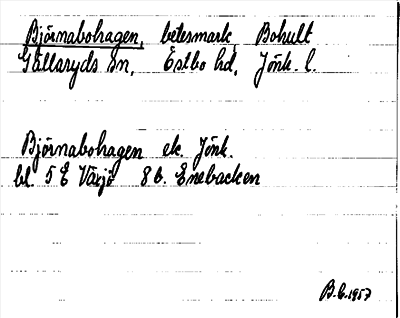 Björnabohagen, betesmark, Bohult
Gällaryds sn, Östbo hd, Jönk. l.
Björnabohagen ek. Jönk.
bl. 5 E Växjö 8 b. Enebacken
B.G. 1957